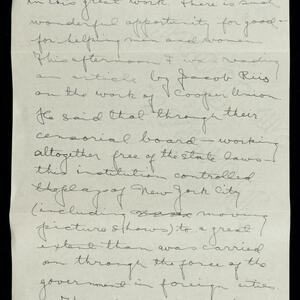 in this great work. There is such
wonderful opportunity for good-
for helping men and women
This afternoon I was reading
an article by Jacob Riis
on the work of Cooper Union
He said that through their
censorial board - working
altogether free of the state laws -
this institution controlled
the plays of New York City
(including moving
picture shows) to a great
extent than was carried
on through the force of the
government in foreign cities.